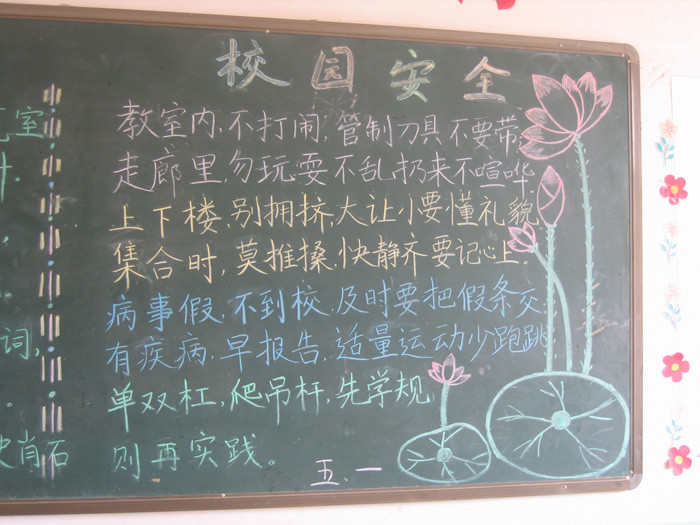 校园安全
教室内,不打闹,管制刀具不要带,
走廊里,勿玩耍,不乱扔来不喧哗.
上下楼,别拥挤,大让小要懂礼貌.
集合时,莫推搡,快静齐要记心上.
病事假,不到校,及时要把假条交,
有疾病,早报告,适量运动少跑跳
单双杠,爬吊杆,先学规
则再实践。
五、一
室
词,
肖石